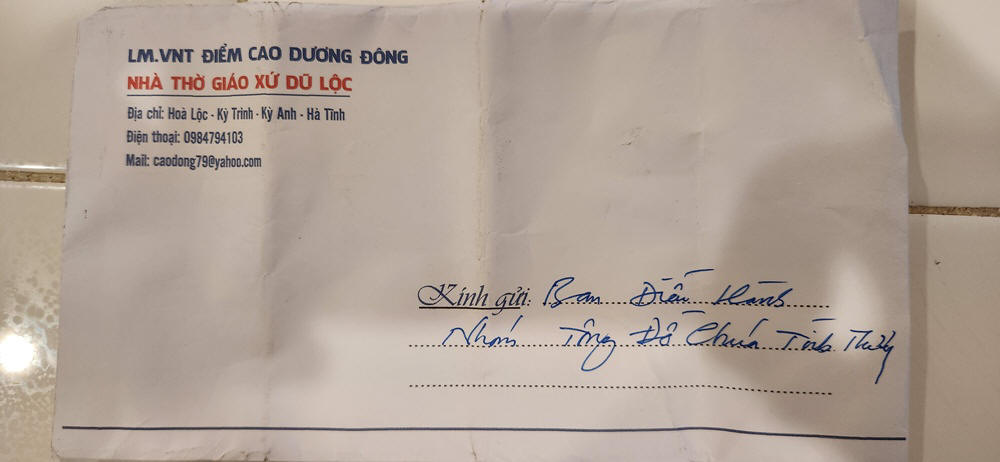 LM.VNT ĐIỂM CAO DƯƠNG ĐÔNG
NHÀ THỜ GIÁO XỨ DŨ LỘC
Địa chỉ: Hoà Lộc - Kỳ Trinh - Kỳ Anh - Hà Tĩnh
Điện thoại: 0984794103
Mail: caodong79@yahoo.com
Kính gửi: Ban Điều Hành
Nhóm Tông Đồ Chúa Tình Thương